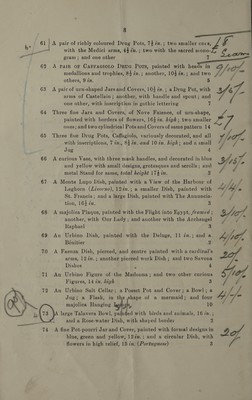 8
61 A pair of richly coloured Drug Pots, 7½ in.; two smaller ones,
with the Medici arms, 4½ in.; two with the sacred mono-
gram; and one other
62 A PAIR OF CAFFAGIOLO DRUG POTS, painted with heads in
medallions and trophies, 9½ in.; another, 10½ in.; and two
others, 9 in. 5
63 A pair of urn-shaped Jars and Covers, 10½ in.; a Drug Pot, with
arms of Castellain; another, with handle and spout; and
one other, with inscription in gothic lettering 7
64 Three fine Jars and Covers, of Nove Faience, of urn-shape,
painted with borders of flowers, 16½ in. high; two smaller
ones; and two cylindrical Pots and Covers of same pattern
65 Three fine Drug Pots, Caffagiolo, variously decorated, and all
with inscriptions, 7 in., 8½ in. and 10 in. high; and a small
Jug 4
66 A curious Vase, with three mask handles, and decorated in blue
and yellow with small designs, grotesques and annulis; and
metal Stand for same, total height 17½ in. 2
67 A Monte Lupo Dish, painted with a View of the Harbour of
Leghorn (Livorno), 12 in.; a smaller Dish, painted with
St. Francis; and a large Dish, painted with The Annuncia-
tion, 18½ in. 3
68 A majolica Plaque, painted with the Flight into Egypt, framed;
another, with Our Lady; and another with the Archangel
Raphael 3
69 An Urbino Dish, painted with the Deluge, 11 in.; and a
Bénitier 2
70 A Faenza Dish, pierced, and centre painted with a cardinal's
arms, 12 in.; another pierced much Dish; and two Savona
Dishes 4
71 An Urbino Figure of the Madonna; and two other curious
Figures, 14 in. high 3
72 An Urbino Salt Cellar; a Posset Pot and Cover; a Bowl; a
Jug; a Flask, in the shape of a mermaid; and four
majolica Hanging 10
73 A large Talavera Bowl, painted with birds and animals, 16 in.;
and a Rose-water Dish, with shaped border 2
74 A fine Pot-pourri Jar and Cover, painted with formal designs in
blue, green and yellow, 13 in.; and a circular Dish, with
flowers in high relief, 15 in. (Portuguese) 3